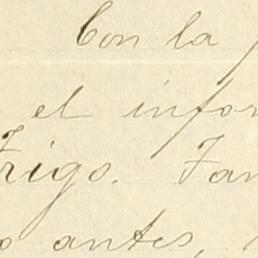 Con la
el infor
Trigo. Tan
o antes,